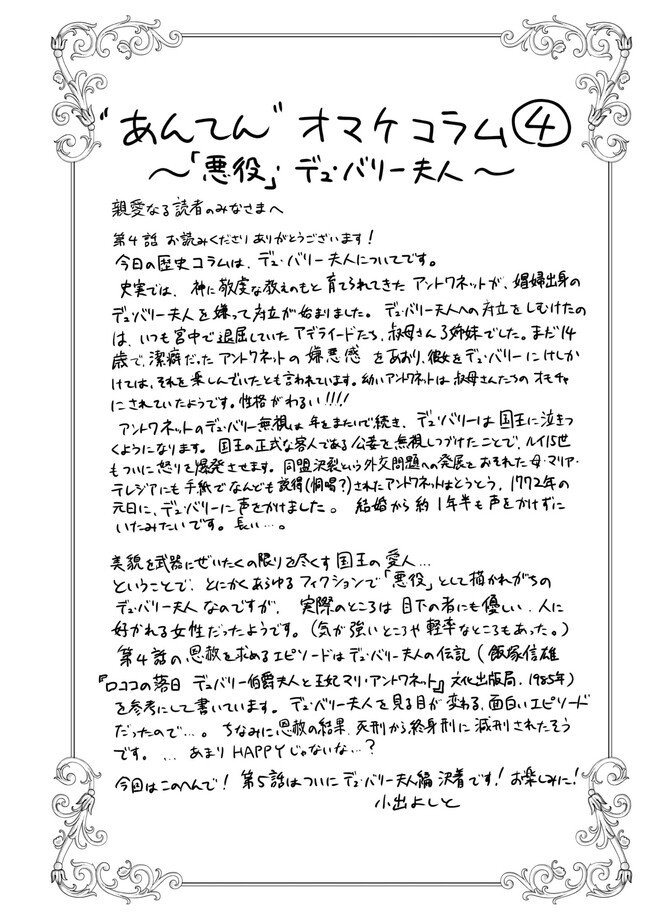 "あんてん" オマケコラム④
～「悪役」デュ・バリー夫人～
親愛なる読者のみなさまへ
第4話 お読みくださりありがとうございます！
今日の歴史コラムは、デュ・バリー夫人についてです。
史実では、神に敬虔な教えのもと育てられてきたアントワネットが、娼婦出身の
デュ・バリー夫人を嫌って対立が始まりました。デュ・バリー夫人への対立をしむけたの
は、いつも宮中で退屈していたアデライードたち、叔母さん3姉妹でした。まだ14
歳で、潔癖だったアントワネットの嫌悪感をあおり、彼女をデュ・バリーにけしか
けては、それを楽しんでいたとも言われています。幼いアントワネットは叔母さんたちのオモチャ
にされていたようです。性格がわるい!!!!
アントワネットのデュ・バリー無視は年をまたいで続き、デュ・バリーは国王に泣きつ
くようになります。国王の正式な客人である公妾を無視しつづけたことで、ルイ15世
もついに怒りを爆発させます。同盟決裂という外交問題への発展をおそれた母・マリア・
テレジアにも手紙でなんども説得(恫喝？)されたアントワネットはとうとう、1772年の
元日に、デュ・バリーに声をかけました。結婚から約1年半も声をかけずに
いたみたいです。長い…。
美貌を武器にぜいたくの限りを尽くす国王の愛人…
ということで、とにかくあらゆるフィクションで「悪役」として描かれがちの
デュ・バリー夫人なのですが、実際のところは目下の者にも優しい、人に
好かれる女性だったようです。(気が強いところや軽率なところもあった。)
第4話の恩赦を求めるエピソードはデュ・バリー夫人の伝記(飯塚信雄
『ロココの落日 デュバリー伯爵夫人と王妃マリ・アントワネット』文化出版局、1985年)
を参考にして書いています。デュ・バリー夫人を見る目が変わる、面白いエピソード
だったので…。ちなみに恩赦の結果、死刑から終身刑に減刑されたそう
です。… あまりHAPPYじゃないな…？
今回はこのへんで！第5話はついにデュ・バリー夫人編決着です！お楽しみに！
小出よしと